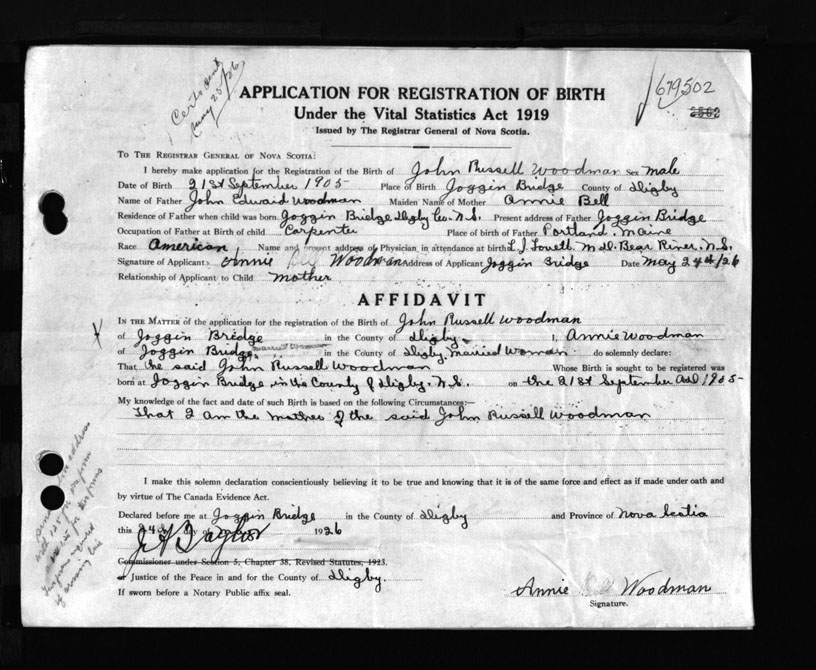 Certs sent
679502
2502
APPLICATION FOR REGISTRATION OF BIRTH
Under the Vital Statistics Act 1919
Issued by The Registrar General of Nova Scotia.
To The Registrar General of Nova Scotia:
I hereby make application for the Registration of the Birth of John Russell Woodman Sex male
Date of Birth 21st September 1905 Place of Birth Joggin Bridge County of Digby
Name of Father John Edward Woodman Maiden Name of Mother Annie Bell
Residence of Father when child was born Joggin Bridge Digby Co. N.S. Present address of Father Joggin Bridge
Occupation of Father at Birth of child Carpenter Place of birth of Father Portland, Maine
Race American Name and present address of Physician in attendance at birth L. J. Lovett M.D. Bear River, N.S.
Signature of Applicant Annie Woodman Address of Applicant Joggin Bridge Date May 24th/26
Relationship of Applicant to Child mother
AFFIDAVIT
In the Matter of the application for the registration of the Birth of John Russell Woodman
of Joggin Bridge in the County of Digby. I, Annie Woodman
of Joggin Bridge married woman in the County of Digby, married Woman do solemnly declare:
That he said John Russell Woodman Whose Birth is sought to be registered was
born at Joggin Bridge in the County of Digby, N.S. on the 21st September AD 1905
My knowledge of the fact and date of such Birth is based on the following Circumstances:—
That I am the mother of the said John Russell Woodman
I make this solemn declaration conscientiously believing it to be true and knowing that it is of the same force and effect as if made under oath and
by virtue of The Canada Evidence Act.
Declared before me at Joggin Bridge in the County of Digby and Province of Nova Scotia
this 24 day of 1926
Commissioner under Section 5, Chapter 38, Revised Statutes, 1923.
Justice of the Peace in and for the County of Digby.
If sworn before a Notary Public affix seal.
Annie Woodman
Signature.